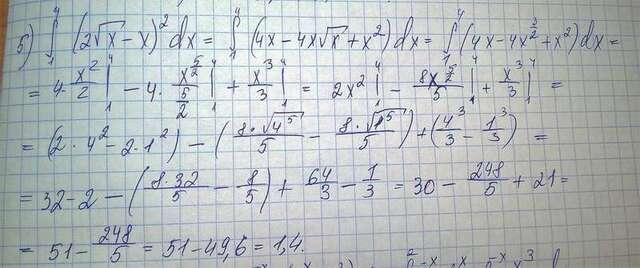 5) ∫₁⁴ (2√x - x)² dx = ∫₁⁴ (4x - 4x√x + x²) dx = ∫₁⁴ (4x - 4x^(3/2) + x²) dx =
= 4 · x²/2 |₁⁴ - 4 · x^(5/2)/(5/2) |₁⁴ + x³/3 |₁⁴ = 2x² |₁⁴ - 8x^(5/2)/5 |₁⁴ + x³/3 |₁⁴ =
= (2 · 4² - 2 · 1²) - (8 · √4⁵/5 - 8 · √1⁵/5) + (4³/3 - 1³/3) =
= 32 - 2 - (8 · 32/5 - 8/5) + 64/3 - 1/3 = 30 - 248/5 + 21 =
= 51 - 248/5 = 51 - 49,6 = 1,4.